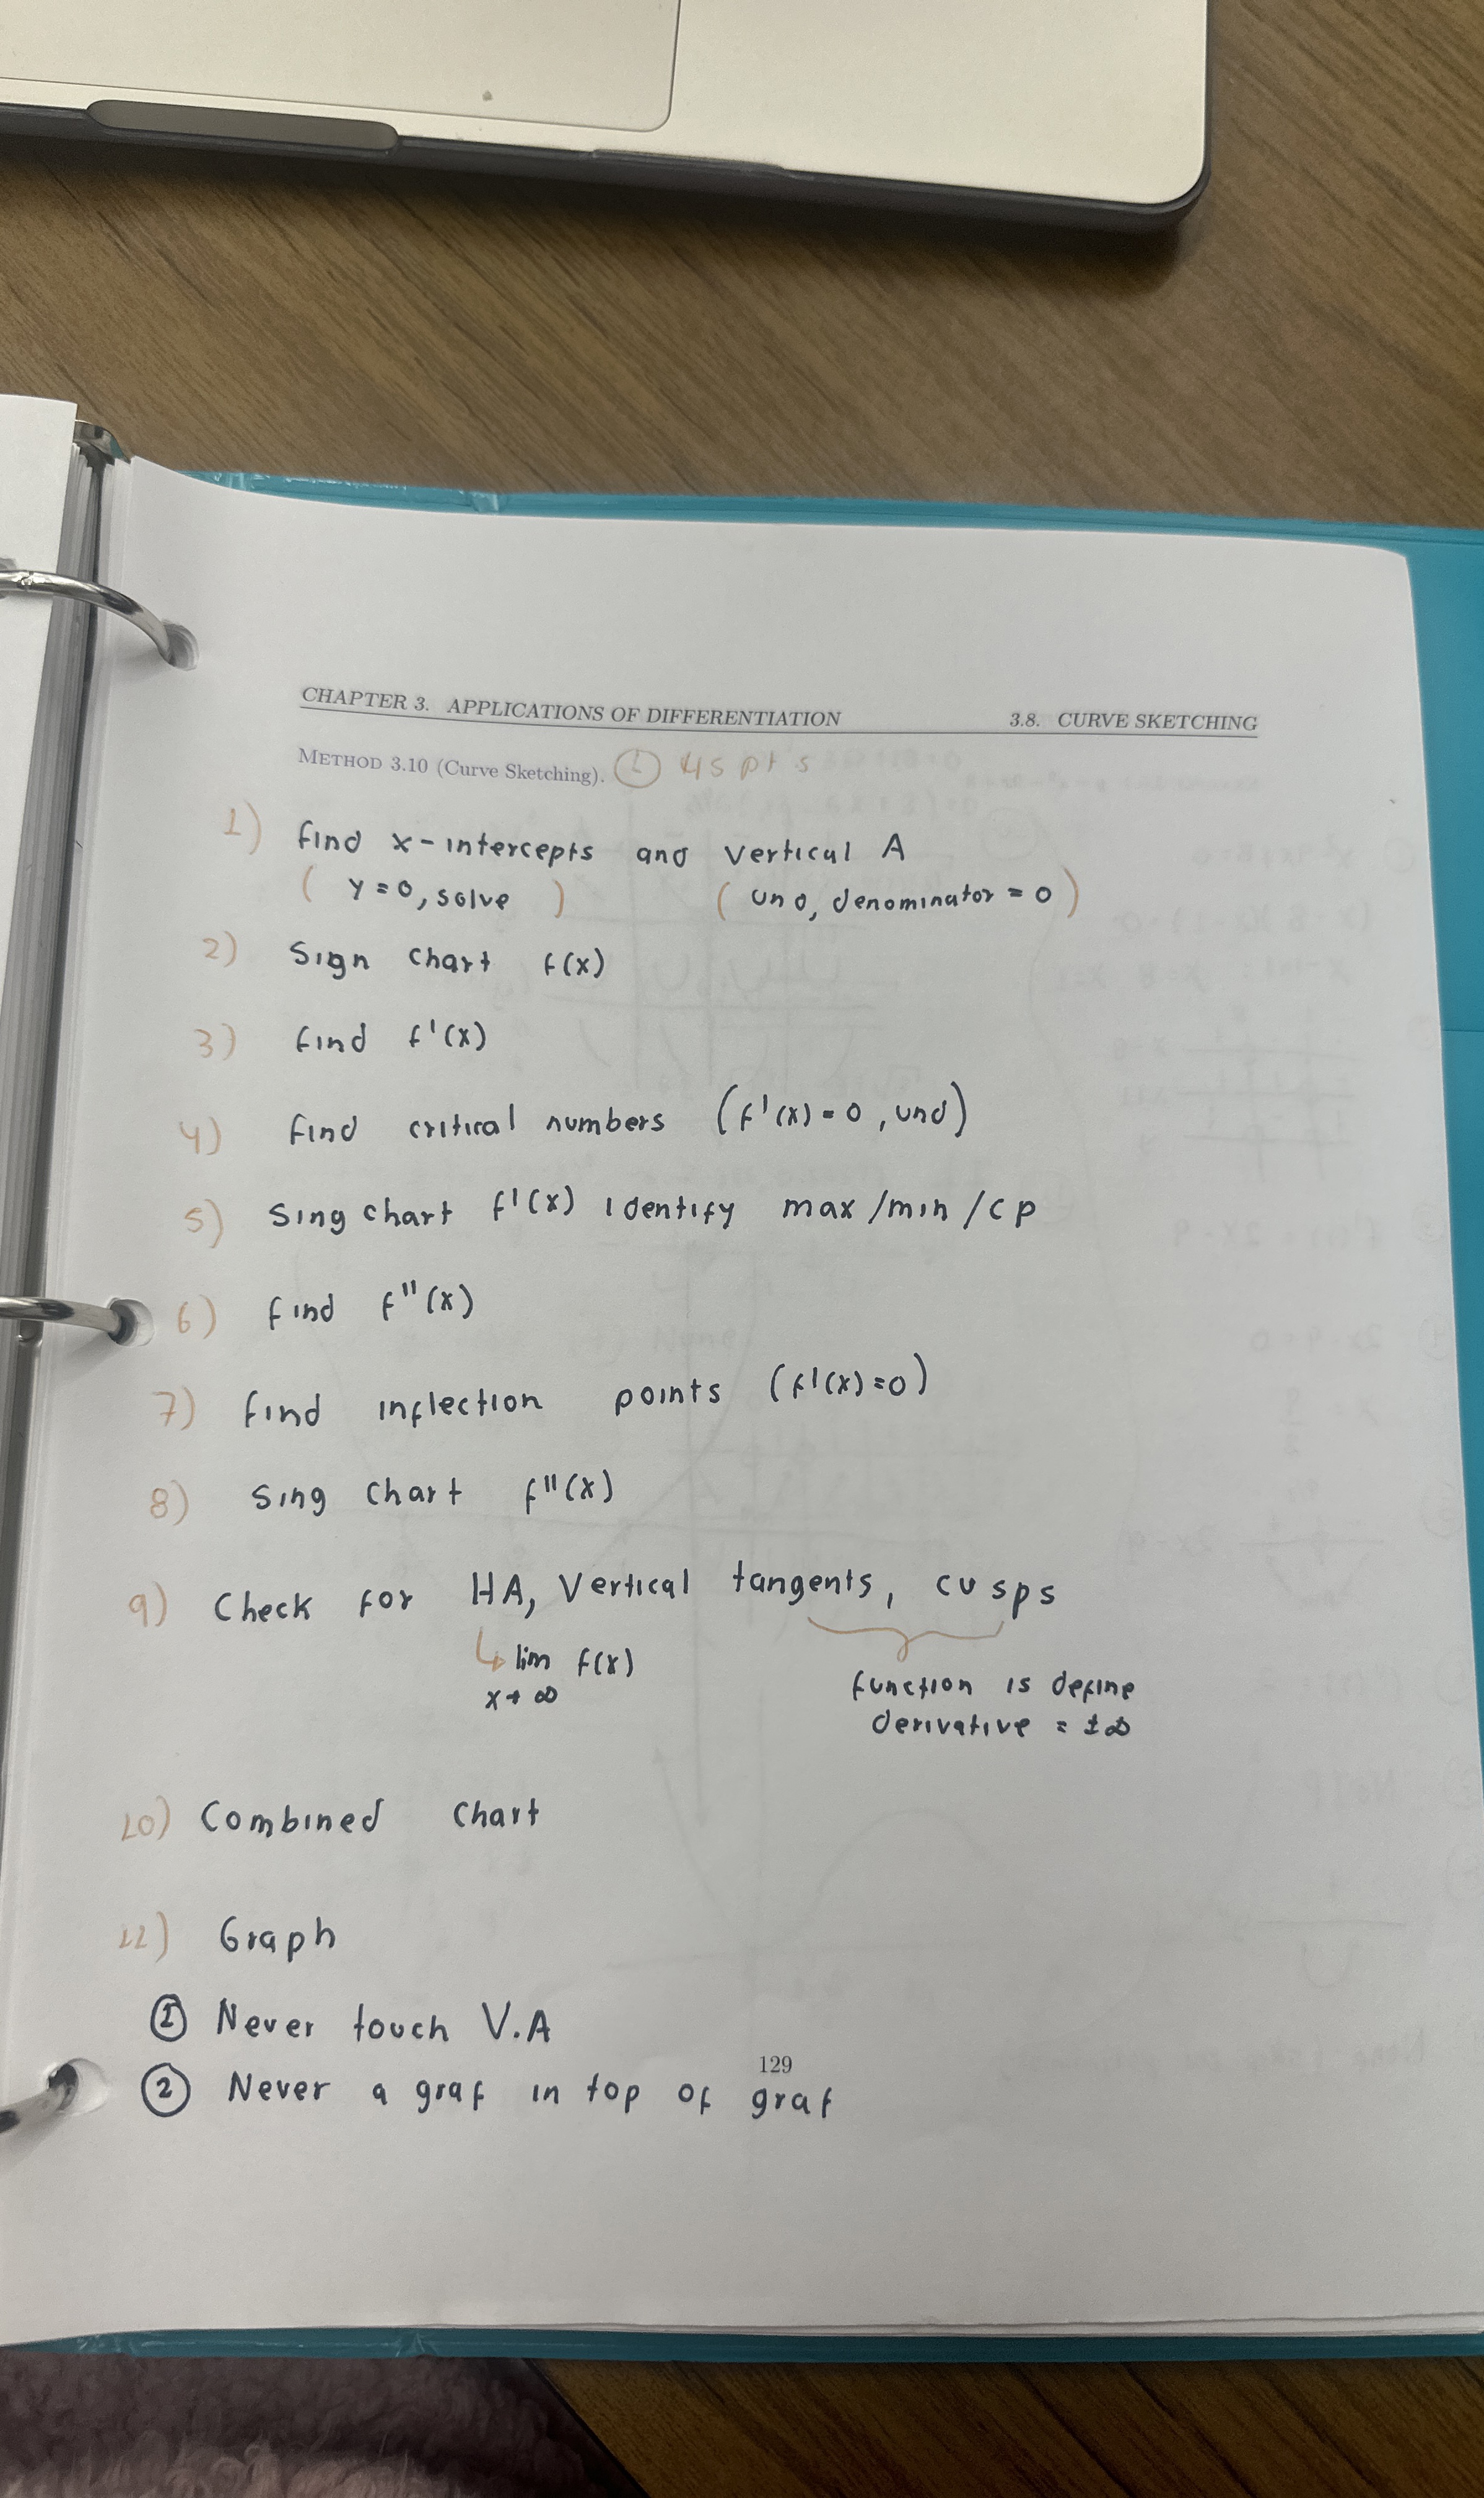 CHAPTER 3. APPLICATIONS OF DIFFERENTIATION 3.8. CURVE SKETCHING
METHOD 3.10 (Curve Sketching). 45 pts
1) find x-intercepts and vertical A
( y=0, solve ) ( und, denominator = 0 )
2) Sign chart f(x)
3) find f'(x)
4) find critical numbers (f'(x)=0, und)
5) Sing chart f'(x) identify max/min/cp
6) find f"(x)
7) find inflection points (f'(x)=0)
8) Sing chart f"(x)
9) Check for HA, Vertical tangents, cusps
↳ lim f(x)
x→∞
function is define
derivative = ±∞
10) Combined chart
11) Graph
① Never touch V.A
129
② Never a graf in top of graf